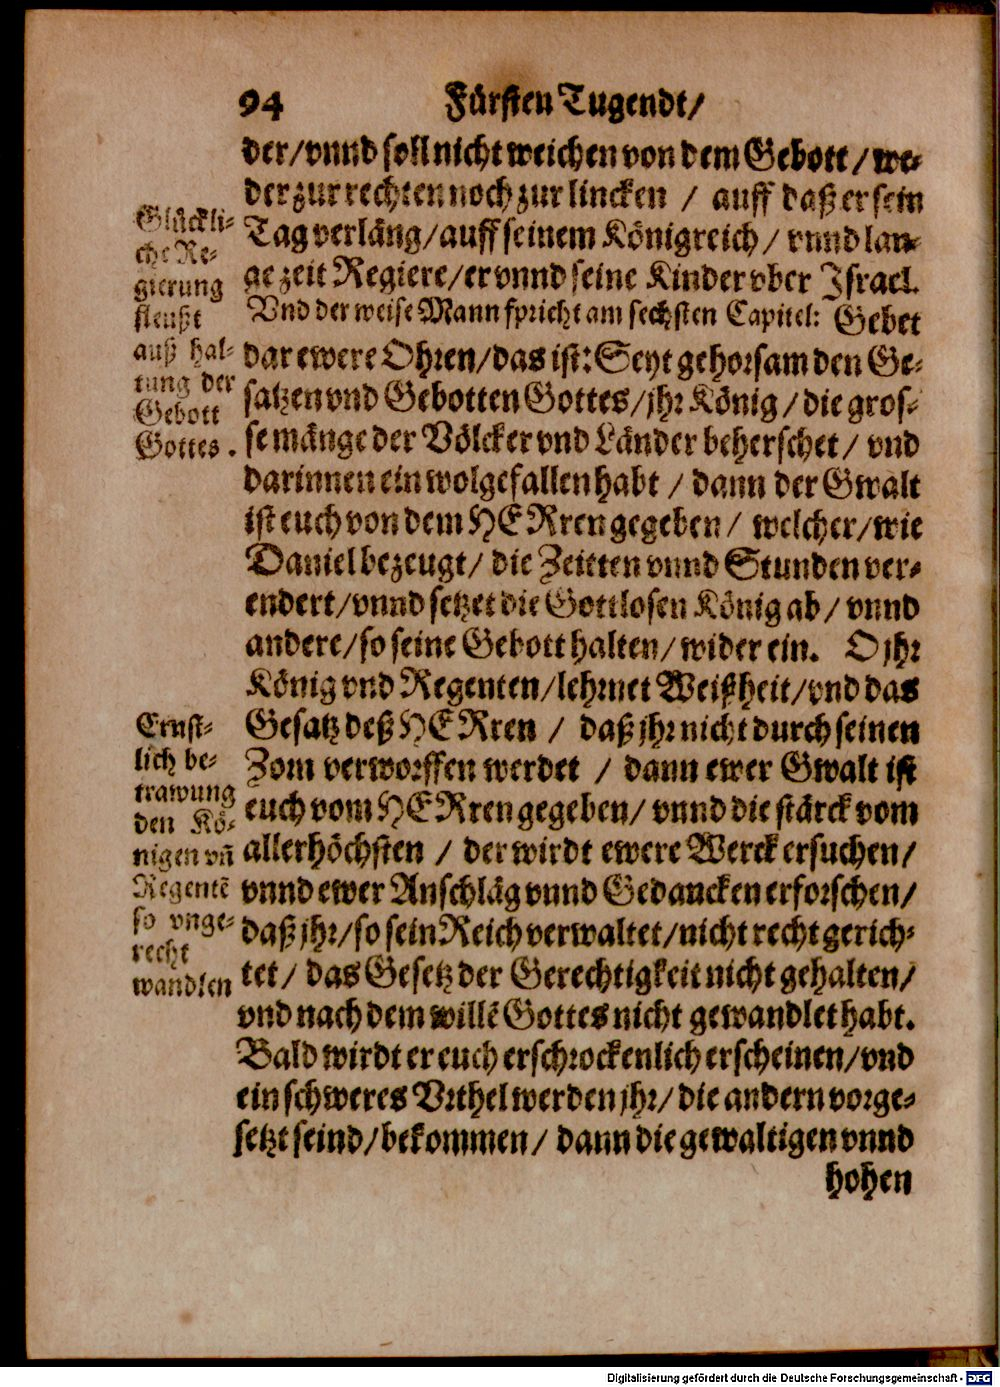 94 Fürsten Tugendt/
der/vnnd soll nicht weichen von dem Gebott/we-
der zur rechten noch zur lincken / auff daß er sein
Tag verläng/auff seinem Königreich/ vnnd lan-
ge zeit Regiere/er vnnd seine Kinder vber Israel.
Vnd der weise Mann spricht am sechsten Capitel: Gebet
dar ewere Ohren/das ist: Seyt gehorsam den Ge-
satzen vnd Gebotten Gottes/jhr König/die gros-
se mänge der Völcker vnd Länder beherschet/ vnd
darinnen ein wolgefallen habt / dann der Gwalt
ist euch von dem HERren gegeben/ welcher/wie
Daniel bezeugt/ die Zeitten vnnd Stunden ver-
endert/vnnd setzet die Gottlosen König ab/ vnnd
andere/so seine Gebott halten/wider ein. O jhr
König vnd Regenten/lehrnet Weißheit/vnd das
Gesatz deß HERren / daß jhr nicht durch seinen
Zorn verworffen werdet / dann ewer Gwalt ist
euch vom HERren gegeben/ vnnd die stärck vom
allerhöchsten / der wirdt ewere Werck ersuchen/
vnnd ewer Anschläg vnnd Gedancken erforschen/
daß jhr/so sein Reich verwaltet/nicht recht gerich-
tet/ das Gesetz der Gerechtigkeit nicht gehalten/
vnd nach dem willē Gottes nicht gewandlet habt.
Bald wirdt er euch erschrockenlich erscheinen/vnd
ein schweres Vrthel werden jhr/die andern vorge-
setzt seind/bekommen/ dann die gewaltigen vnnd
hohen
Glückli-
che Re-
gierung
fleußt
auß hal-
tung der
Gebott
Gottes.
Ernst-
lich be-
trawung
den Kö-
nigen vñ
Regentē
so vnge-
recht
wandlen
Digitalisierung gefördert durch die Deutsche Forschungsgemeinschaft - DFG